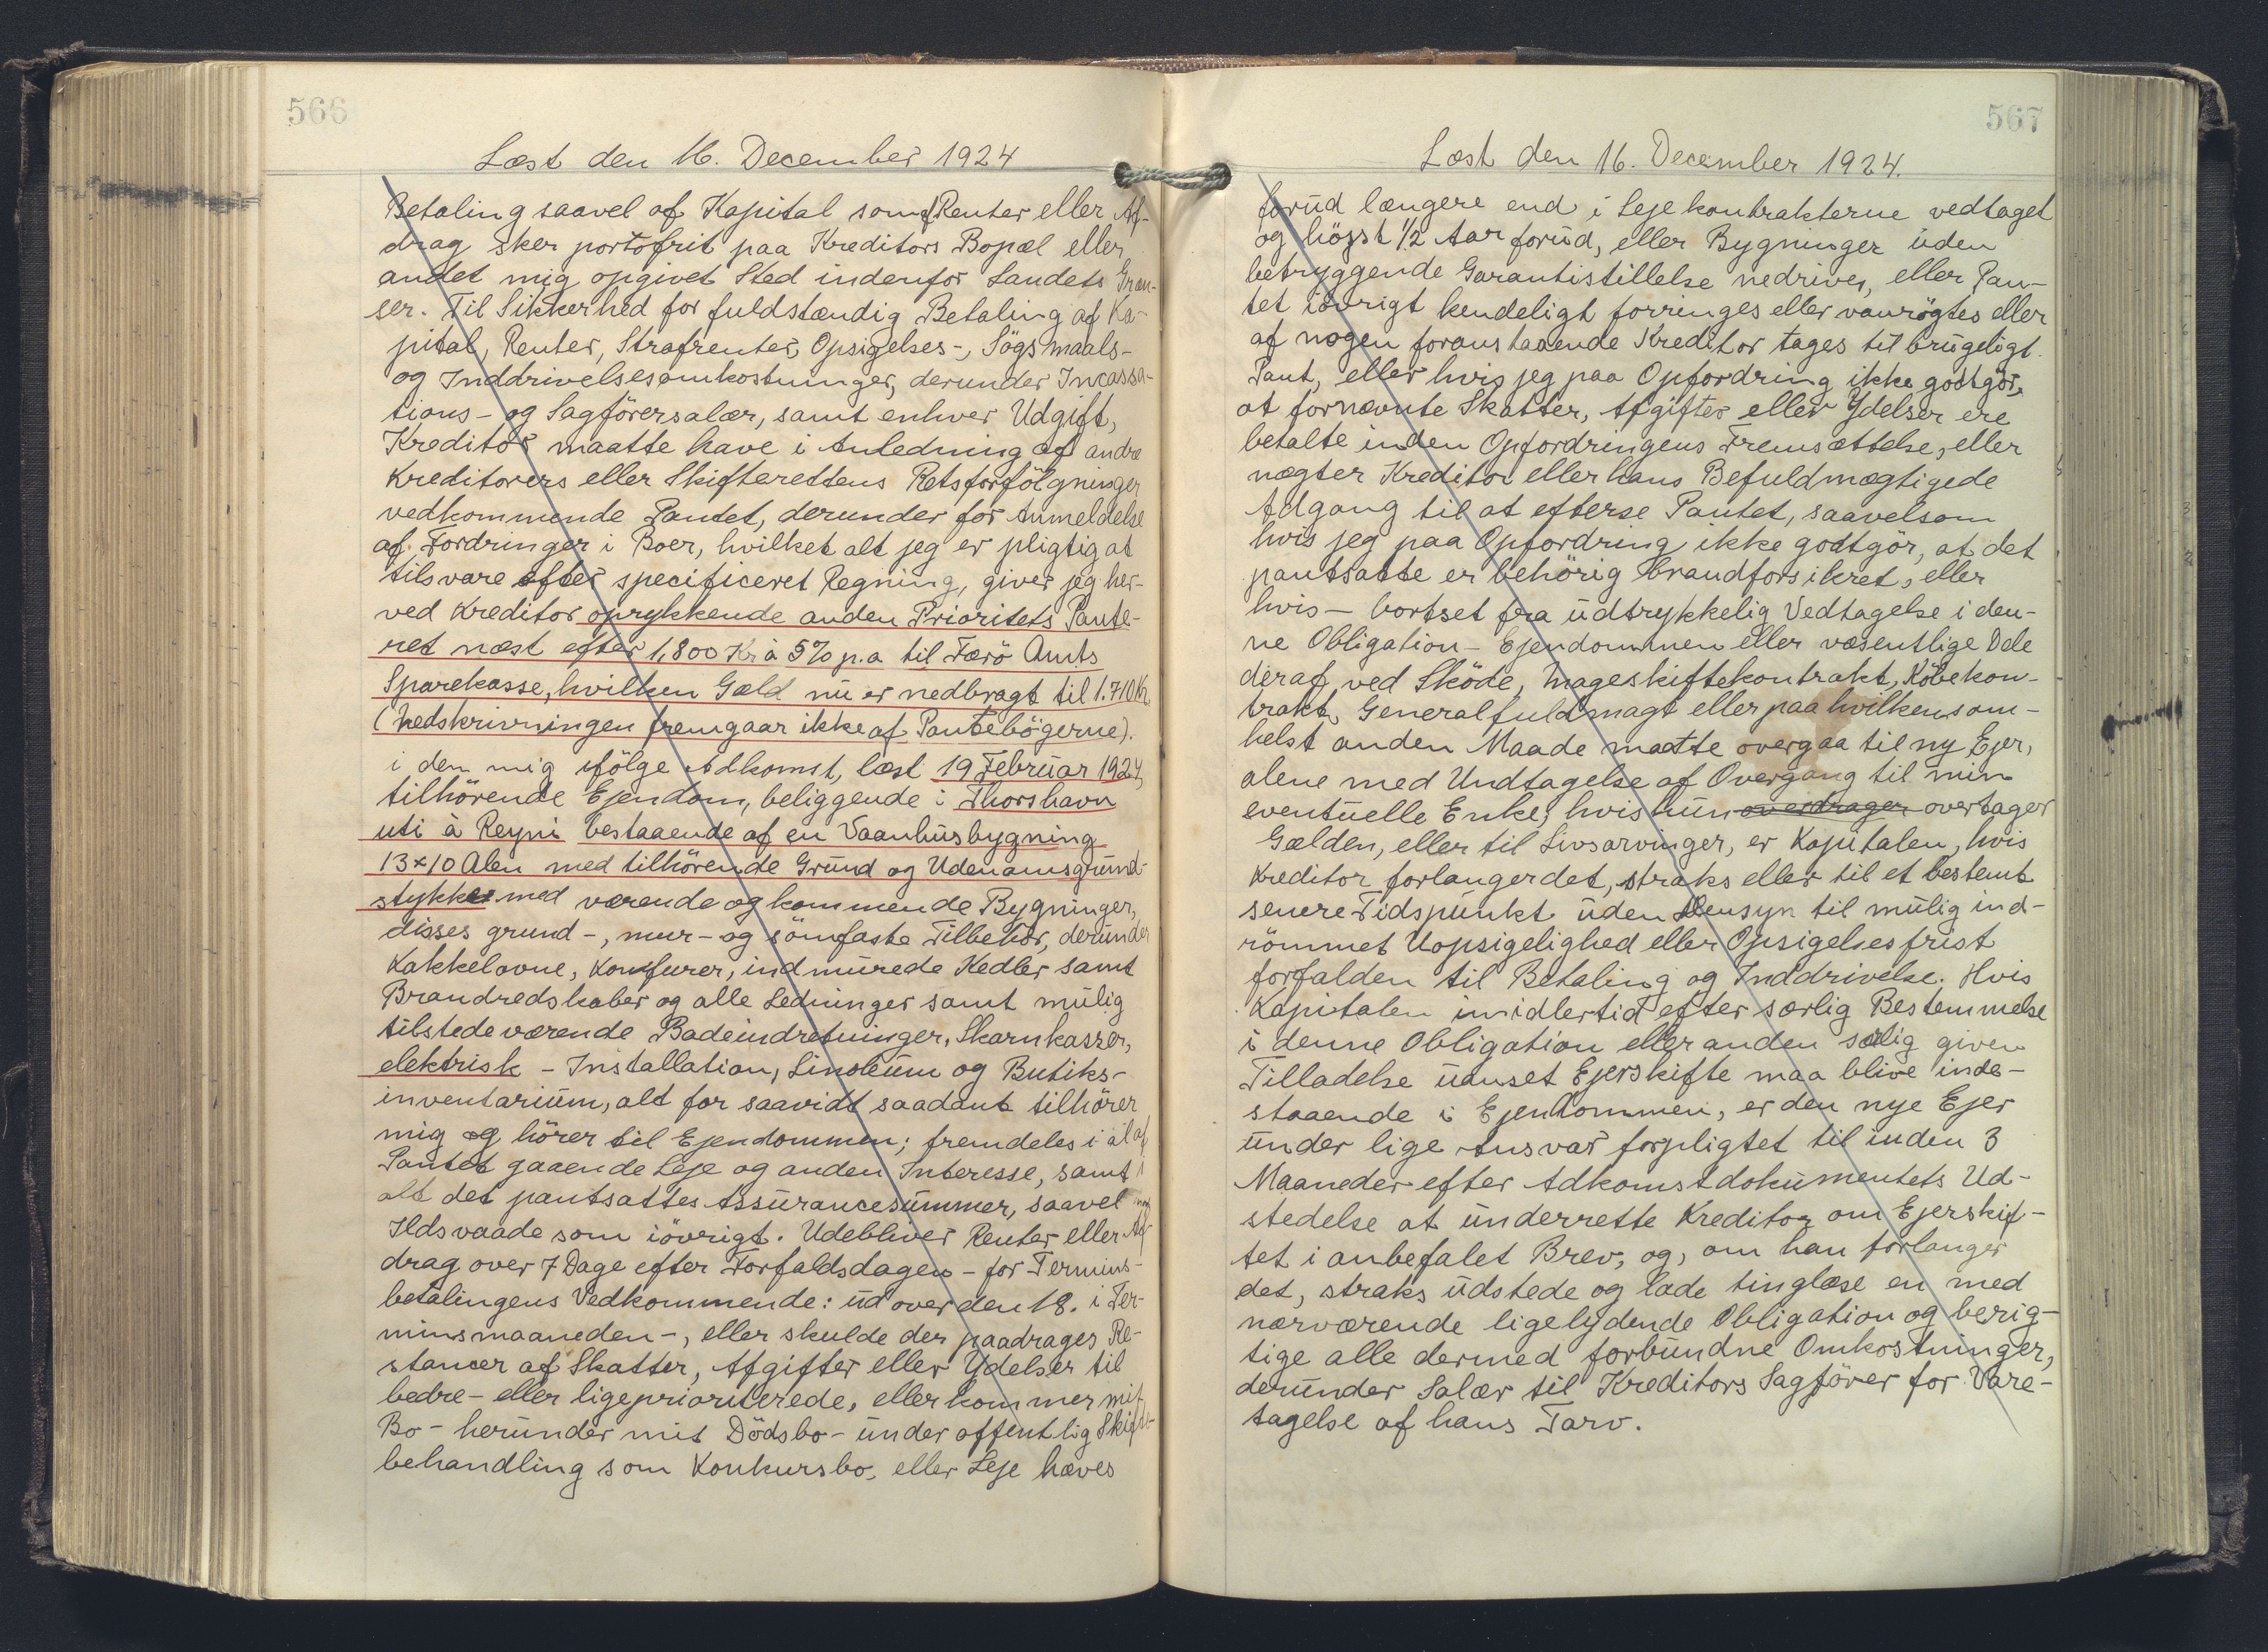 566
Læst den 16. December 1924
Betaling saavel af Kapital som af Renter eller Af-
drag sker portofrit paa Kreditors Bopæl eller
andet mig opgivet Sted indenfor Landets Græn-
ser. Til Sikkerhed for fuldstændig Betaling af Ka-
pital, Renter, Strafrenter, Opsigelses-, Sögsmaals-
og Inddrivelsesomkostninger, derunder Incassa-
tions- og Sagförersalær, samt enhver Udgift,
Kreditor maatte have i Anledning af andre
Kreditorers eller Skifterettens Retsforfölgninger
vedkommende Pantet, derunder for Anmeldelse
af Fordringer i Boer, hvilket alt jeg er pligtig at
tilsvare efter specificeret Regning, giver jeg her-
ved Kreditor oprykkende anden Prioritets Pante-
ret næst efter 1,800 Kr à 5% p.a til Færö Amts
Sparekasse, hvilken Gæld nu er nedbragt til 1.710 Kr.
(Nedskrivningen fremgaar ikke af Pantebögerne).
i den mig ifölge Adkomst, læst 19 Februar 1924,
tilhörende Ejendom, beliggende i Thorshavn
uti à Reyni bestaaende af en Vaanhusbygning
13x10 Alen med tilhörende Grund og Udenomsgrund-
stykker med værende og kommende Bygninger,
disses grund-, mur- og sömfaste Tilbehör, derunder
Kakkelovne, Komfurer, indmurede Kedler samt
Brandredskaber og alle Ledninger samt mulig
tilstedeværende Badeindretninger, Skarnkasser,
elektrisk - Installation, Linoleum og Butiks-
inventarium, alt for saavidt saadant tilhörer
mig og hörer til Ejendommen; fremdeles i al af
Pantet gaaende Leje og anden Interesse, samt i
alt det pantsattes Assurancesummer, saavel mod
Ildsvaade som iövrigt. Udebliver Renter eller Af-
drag over 7 Dage efter Forfaldsdagen - for Termins-
betalingens Vedkommende: ud over den 18. i Ter-
minsmaaneden -, eller skulde der paadrages Re-
stancer af Skatter, Afgifter eller Ydelser til
bedre- eller ligeprioriterede, eller kommer mit
Bo - herunder mit Dödsbo - under offentlig Skifte-
behandling som Konkursbo, eller Leje hæves
567
Læst den 16. December 1924.
forud længere end i Lejekontrakterne vedtaget
og højst 1/2 Aar forud, eller Bygninger uden
betryggende Garantistillelse nedrives, eller Pan-
tet iövrigt kendeligt forringes eller vanrögtes eller
af nogen foranstaaende Kreditor tages til brugeligt
Pant, eller hvis jeg paa Opfordring ikke godtgör,
at fornævnte Skatter, Afgifter eller Ydelser ere
betalte inden Opfordringens Fremsættelse, eller
nægter Kreditor eller hans Befuldmægtigede
Adgang til at efterse Pantet, saavelsom
hvis jeg paa Opfordring ikke godtgör, at det
pantsatte er behörig brandforsikret, eller
hvis - bortset fra udtrykkelig Vedtagelse i den-
ne Obligation - Ejendommen eller væsentlige Dele
deraf ved Sköde, Mageskiftekontrakt, Köbekon-
trakt, Generalfuldmagt eller paa hvilkensom-
helst anden Maade maatte overgaa til ny Ejer,
alene med Undtagelse af Overgang til min
eventuelle Enke, hvis hun overdrager overtager
Gælden, eller til Livsarvinger, er Kapitalen, hvis
Kreditor forlanger det, straks eller til et bestemt
senere Tidspunkt uden Hensyn til mulig ind-
römmet Uopsigelighed eller Opsigelsesfrist
forfalden til Betaling og Inddrivelse. Hvis
Kapitalen imidlertid efter særlig Bestemmelse
i denne Obligation eller anden særlig given
Tilladelse uanset Ejerskifte maa blive inde-
staaende i Ejendommen, er den nye Ejer
under lige Ansvar forpligtet til inden 3
Maaneder efter Adkomstdokumentets Ud-
stedelse at underrette Kreditor om Ejerskif-
tet i anbefalet Brev, og, om han forlanger
det, straks udstede og lade tinglæse en med
nærværende ligelydende Obligation og berig-
tige alle dermed forbundne Omkostninger,
derunder Salær til Kreditors Sagförer for Vare-
tagelse af hans Tarv.